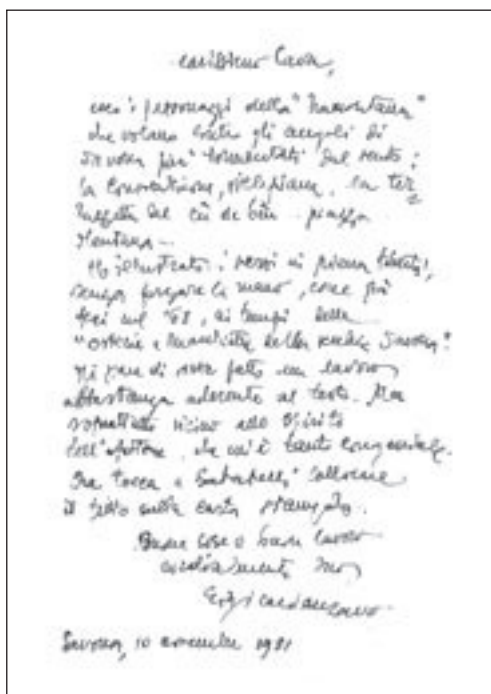 carissimo Cava,
ecco i personaggi della "tramontana"
che volano contro gli angoli di
Savona più tormentati dal vento:
la Consolazione, , la ter
razzetta del cü de bëu piazza
Mentana...
Ho illustrato i versi in piena libertà,
senza forzare la mano, come già
feci nel '68, ai tempi delle
"osterie e della vecchia Savona".
Mi pare di aver fatto un lavoro
abbastanza aderente al testo. Ma
soprattutto vicino allo spirito
dell'Autore, che mi è tanto congeniale.
Ora tocca a Sabatelli collocare
il tutto sulla carta stampata.
Buone cose e buon lavoro
cordialmente tuo

Savona, 10 novembre 1981